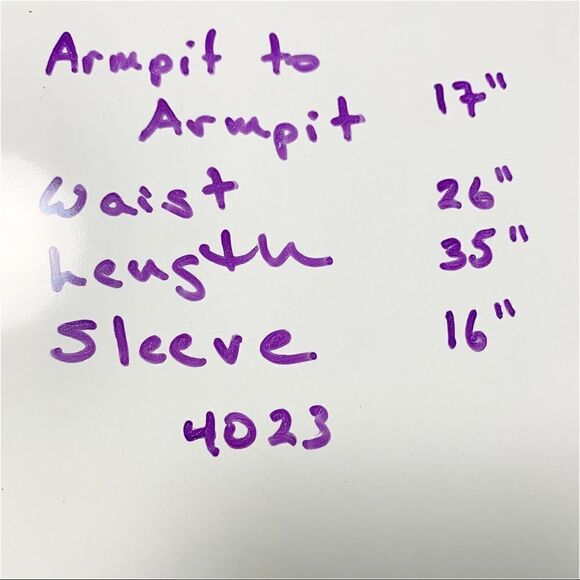 Armpit to
Armpit 17"
Waist 26"
Length 35"
Sleeve 16"
4023